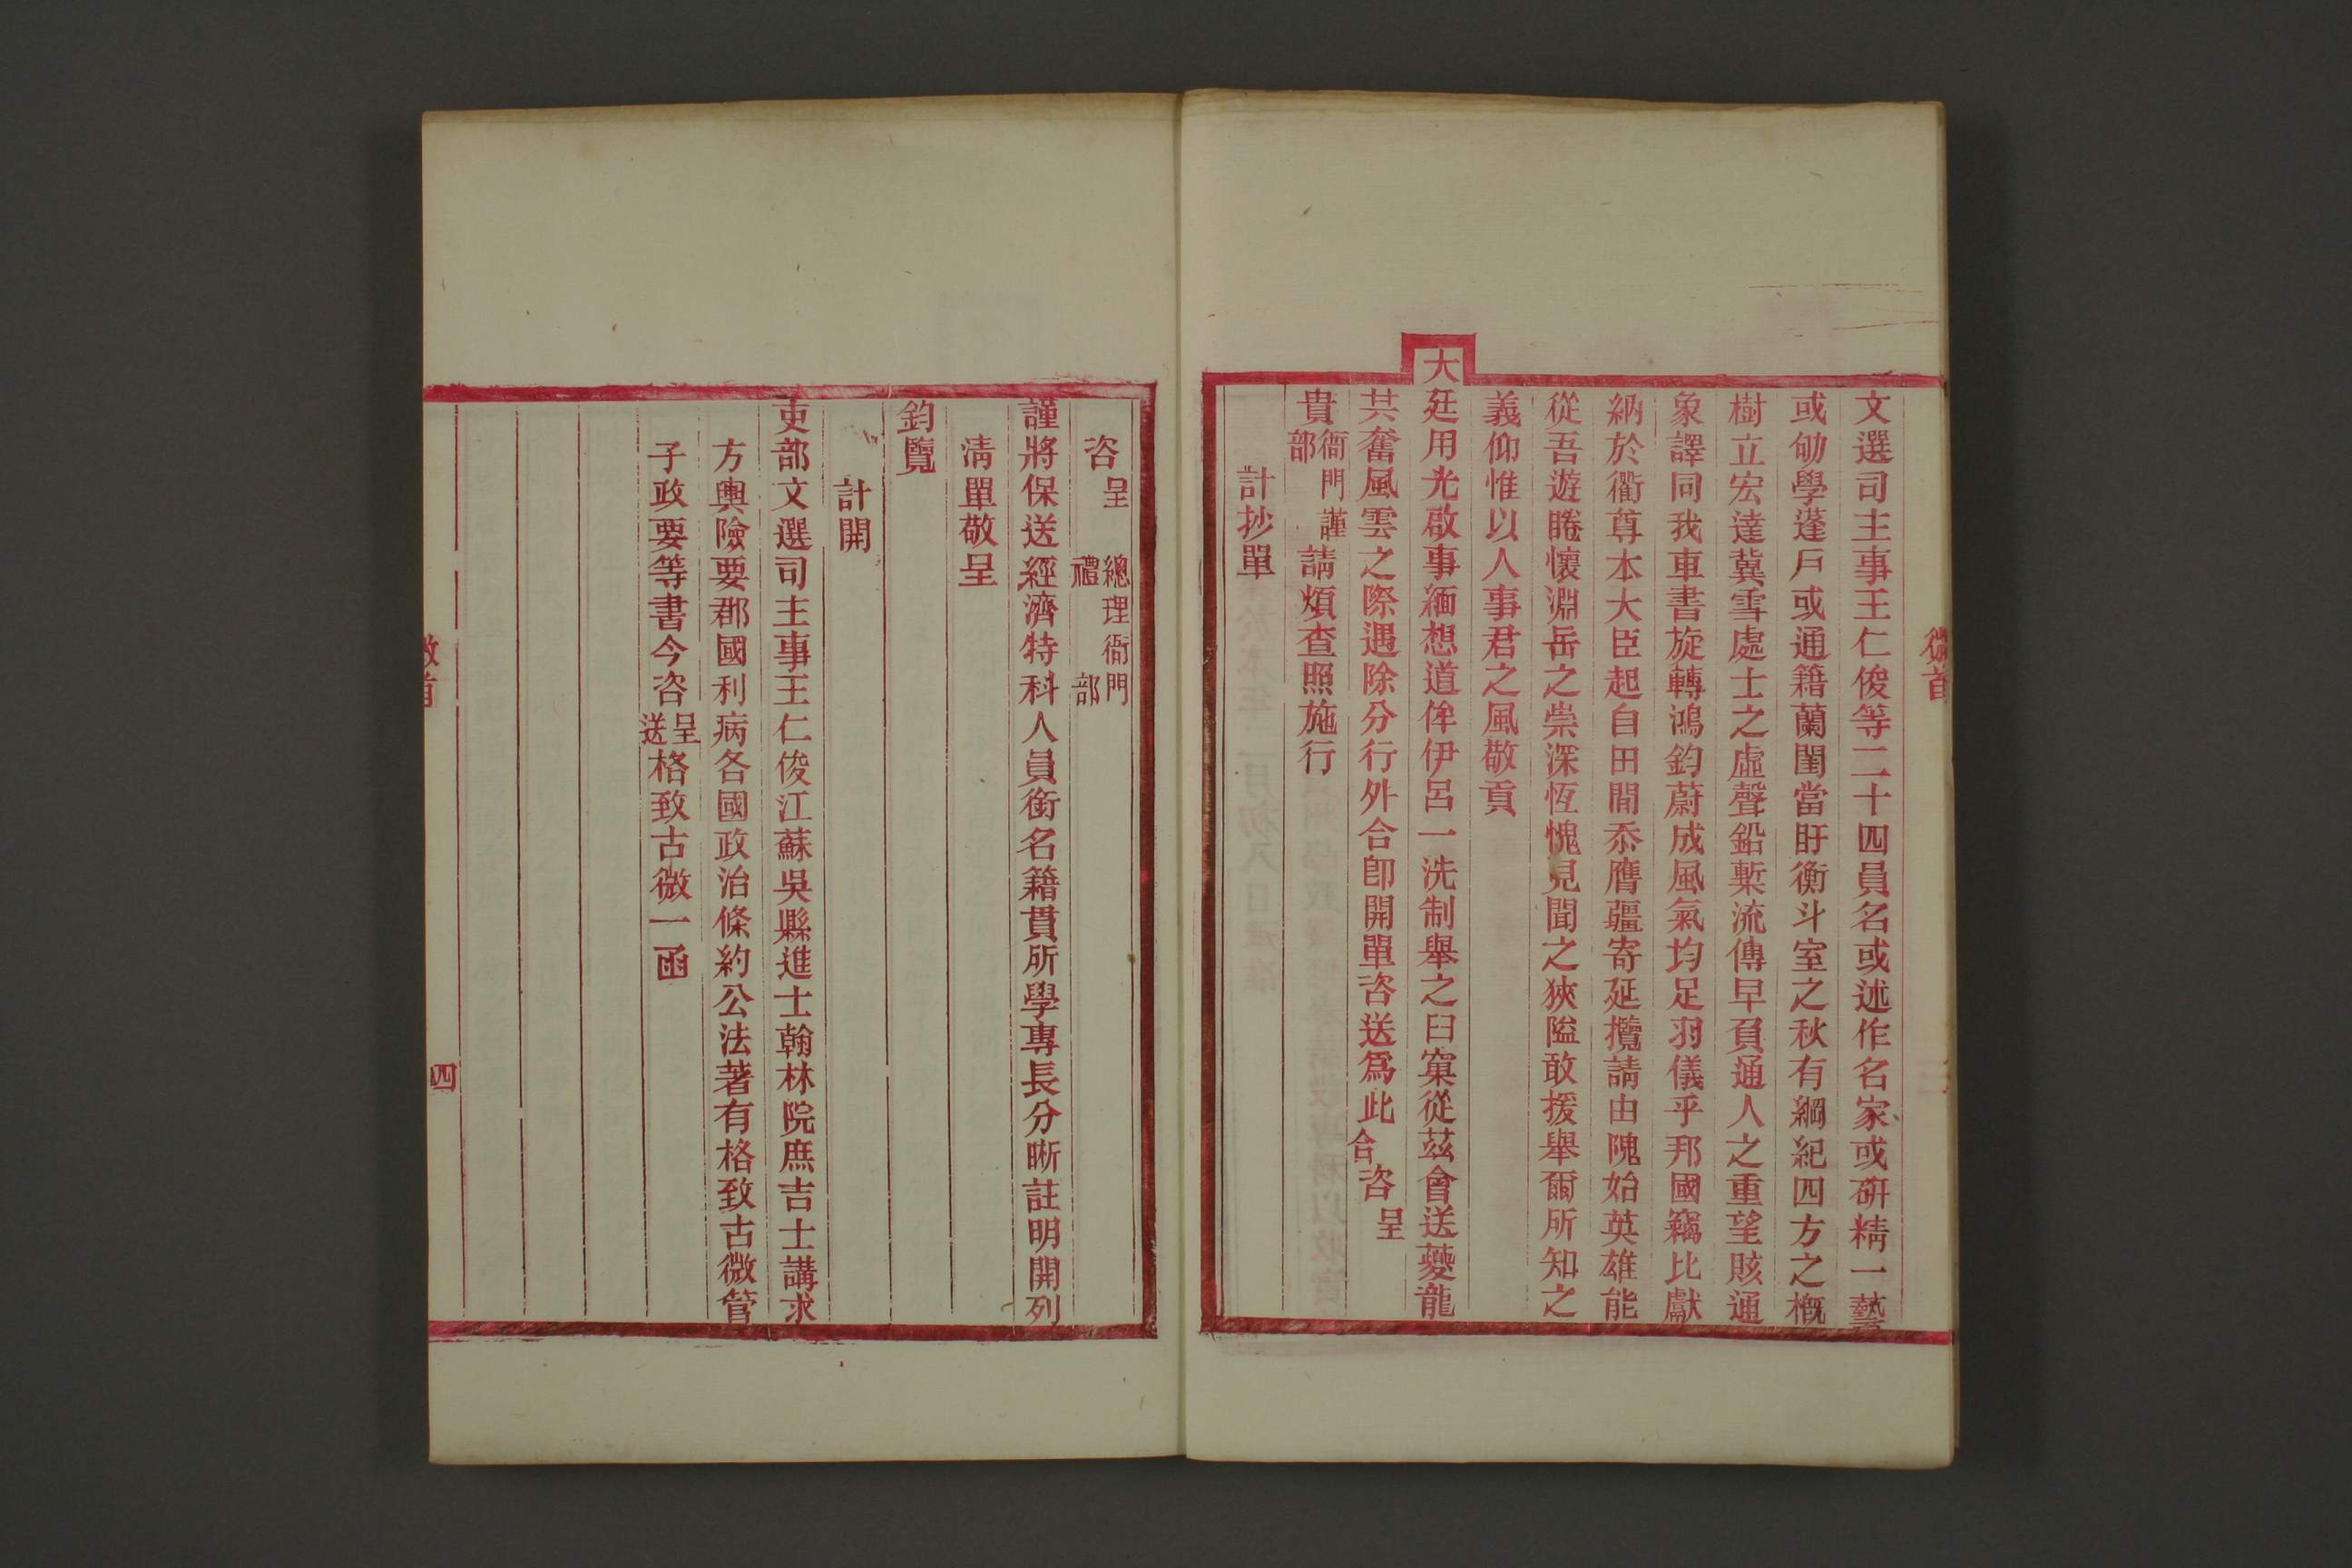 微首
文選司主事王仁俊等二十四員名或述作名家或研精一藝
或劬學蓬戶或通籍蘭閨當盱衡斗室之秋有綱紀四方之槪
樹立宏達冀雪處士之虛聲鉛槧流傳早負通人之重望賅通
象譯同我車書旋轉鴻鈞蔚成風氣均足羽儀乎邦國竊比獻
納於衢尊本大臣起自田間忝膺疆寄延攬請由隗始英雄能
從吾遊睠懷淵岳之崇深恆愧見聞之狹隘敢援舉爾所知之
義仰惟以人事君之風敬貢
大廷用光啟事緬想道侔伊呂一洗制舉之臼窠從茲會送夔龍
共奮風雲之際遇除分行外合卽開單咨送爲此合咨呈
貴衙門謹部請煩查照施行
計抄單
咨呈總理衙門禮部
謹將保送經濟特科人員銜名籍貫所學專長分晰註明開列
淸單敬呈
鈞覽
計開
吏部文選司主事王仁俊江蘇吳縣進士翰林院庶吉士講求
方輿險要郡國利病各國政治條約公法著有格致古微管
子政要等書今咨呈送格致古微一函
微首
四